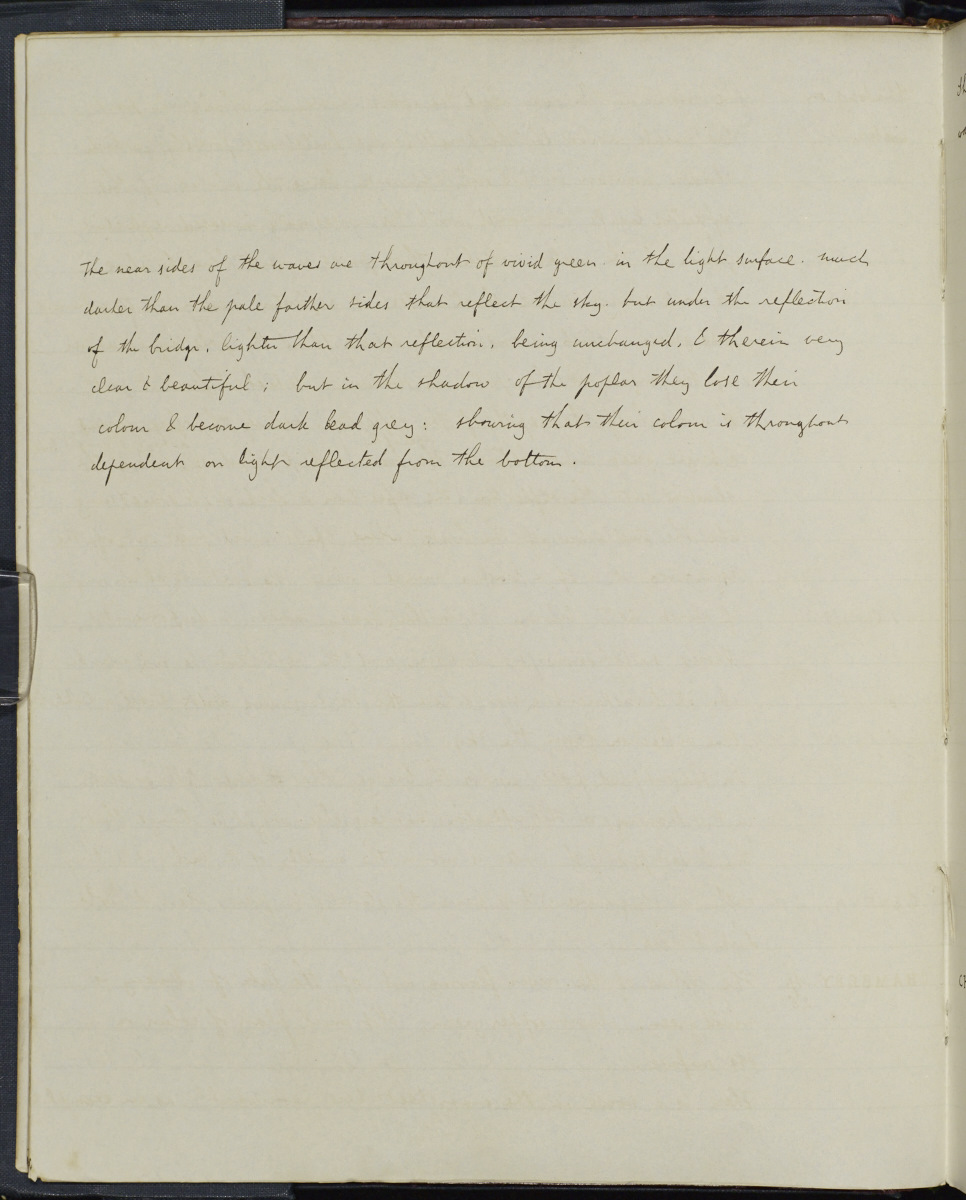 the near sides of the waves are throughout of vivid green. in the light surface. much
darker than the pale farther sides that reflect the sky. but under the reflection
of the bridge, lighter than that reflection, being unchanged, & therein very
clear & beautiful; but in the shadow of the poplar they lose their
colour & become dark lead grey: showing that their colour is throughout
dependent on light reflected from the bottom.